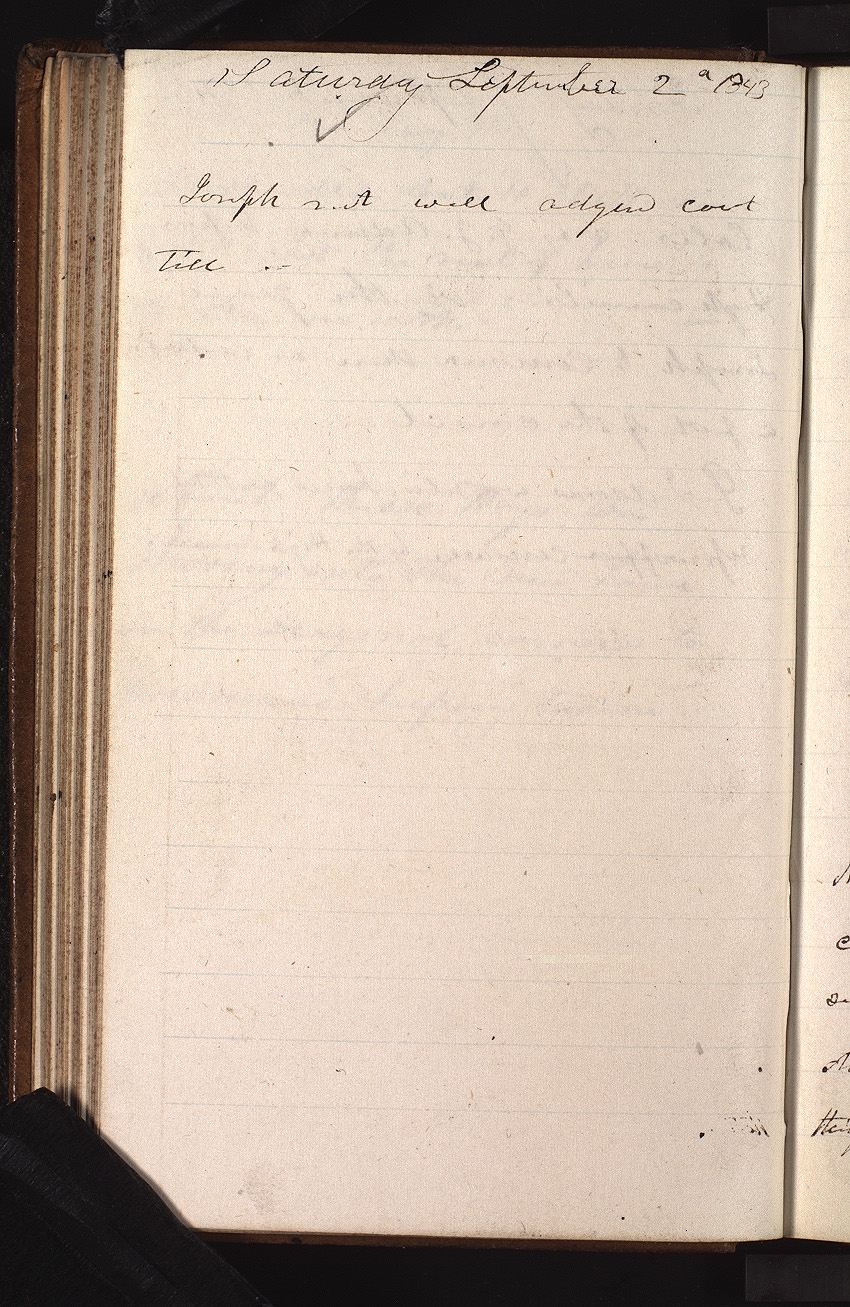 Saturday September 2d 1843
Joseph not well adgend cout
till